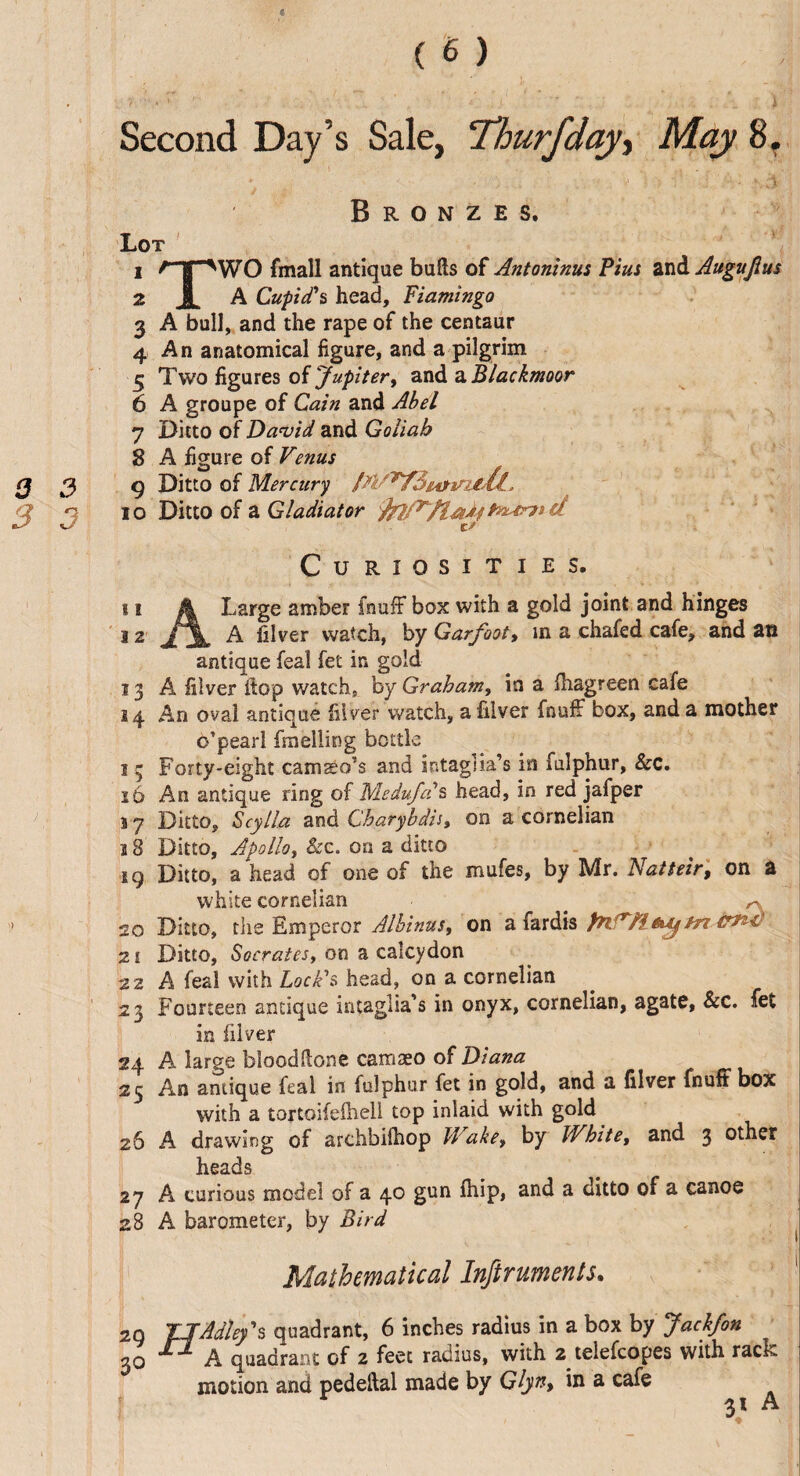 ( 6 )
Second Day's Sale, Thurſday, May 8.
BRONZES.
LOT
1 TWO ſmall antique buſts of Antoninus Pius and Auguſtus
2 A Cupid's head, Fiamingo
3 A bull, and the rape of the centaur
4 An anatomical figure, and a pilgrim
5 Two figures of Jupiter, and a Blackmoor
6 A groupe of Cain and Abel
7 Ditto of David and Goliah
8 A figure of Venus
3 3 9 Ditto of Mercury
3 3 10 Ditto of a Gladiator
CURIOSITIES.
11 A Large amber ſnuff box with a gold joint and hinges
12 A ſilver watch, by Garfoot, in a chaſed caſe, and an
antique ſeal ſet in gold
13 A ſilver ſtop watch, by Graham, in a ſhagreen caſe
14 An oval antique ſilver watch, a ſilver ſnuff box, and a mother
o'pearl ſmelling bottle
15 Forty-eight camæo's and intaglia's in ſulphur, &c.
16 An antique ring of Meduſa's head, in red jaſper
17 Ditto, Scylla and Charybdis, on a cornelian
18 Ditto, Apollo, &c. on a ditto
19 Ditto, a head of one of the muſes, by Mr. Natteir, on a
white cornelian
20 Ditto, the Emperor Albinus, on a ſardis
21 Ditto, Socrates, on a calcydon
22 A ſeal with Lock's head, on a cornelian
23 Fourteen antique intaglia's in onyx, cornelian, agate, &c. ſet
in ſilver
24 A large bloodſtone camæo of Diana
25 An antique ſeal in ſulphur ſet in gold, and a ſilver ſnuff box
with a tortoiſeſhell top inlaid with gold
26 A drawing of archbiſhop Wake, by White, and 3 other
heads
27 A curious model of a 40 gun ſhip, and a ditto of a canoe
28 A barometer, by Bird
Mathematical Inſtruments.
29 HAdley's quadrant, 6 inches radius in a box by Jackſon
30 A quadrant of 2 feet radius, with 2 teleſcopes with rack
motion and pedeſtal made by Glyn, in a caſe
31 A